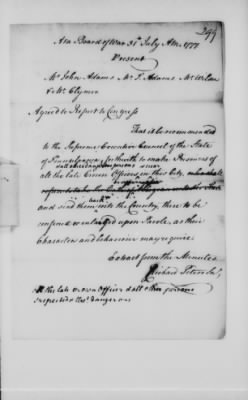 249
At a Board of War 31st July A.M. 1777
Present
Mr John Adams Mr S. Adams Mr Wilson
& Mr Clymer
Agreed to Report to Congress
That it be recommended
to the Supreme Executive Council of the State
of Pennsylvania forthwith to make Prisoners of
all the late Crown Officers in this City,
and send them back into the Country, there to be
confined or enlarged upon Parole, as their
Characters and behaviour may require.
Extract from the Minutes
Richard Peters Secy
All the late Crown Officers & all other persons
suspected to be dangerous